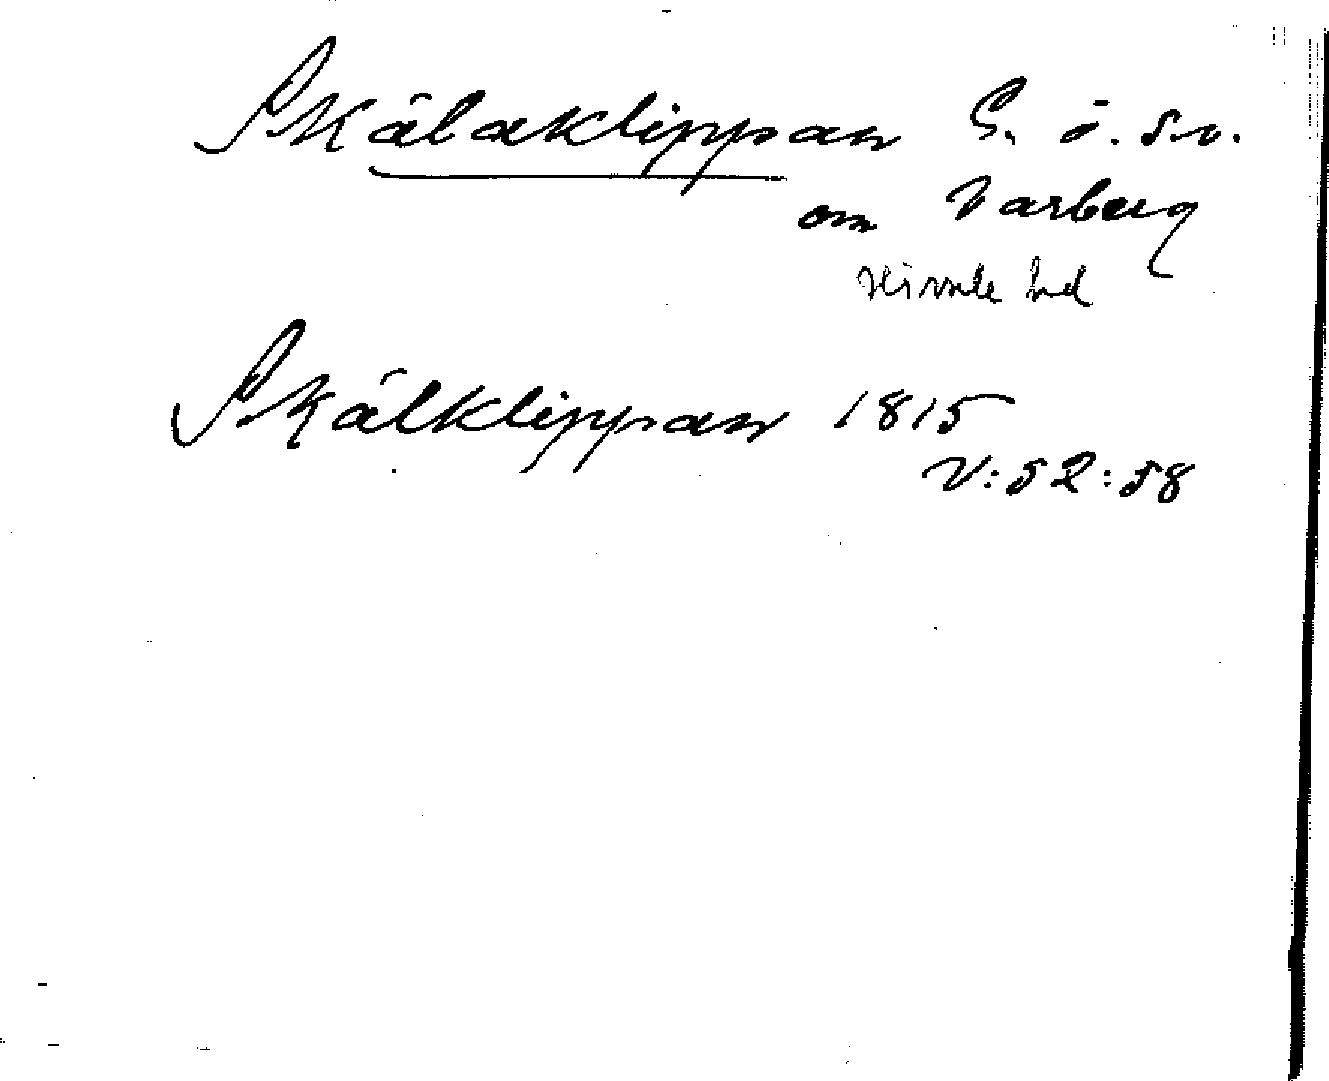 Skälaklippan S. ö. s.v.
om Varberg
Himle hd
Skälklippan 1815
V:52:58